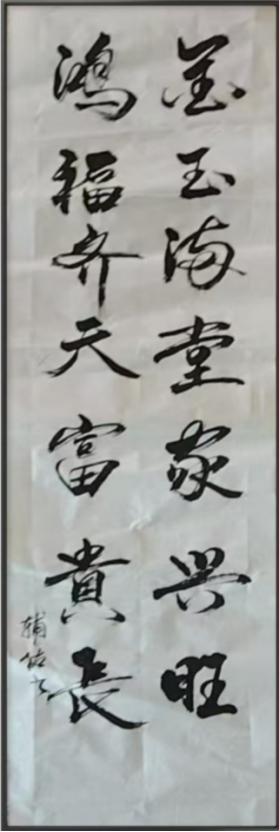 金玉满堂家兴旺
鸿福齐天富贵长